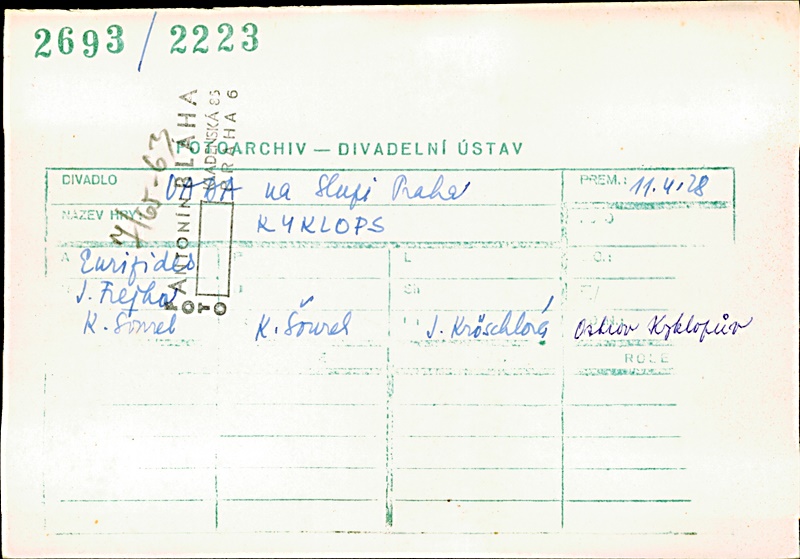 2693 / 2223
FOTOARCHIV — DIVADELNÍ ÚSTAV
DIVADLO na Slupi Praha PREM.: 11.4.28
NÁZEV HRY KYKLOPS
A Euripides L
J. Frejka
K. Šourek K. Šourek J. Kröschlová Ostrov Kyklopův
ROLE
FOTO
ANTONÍN BLÁHA
PRAHA 6